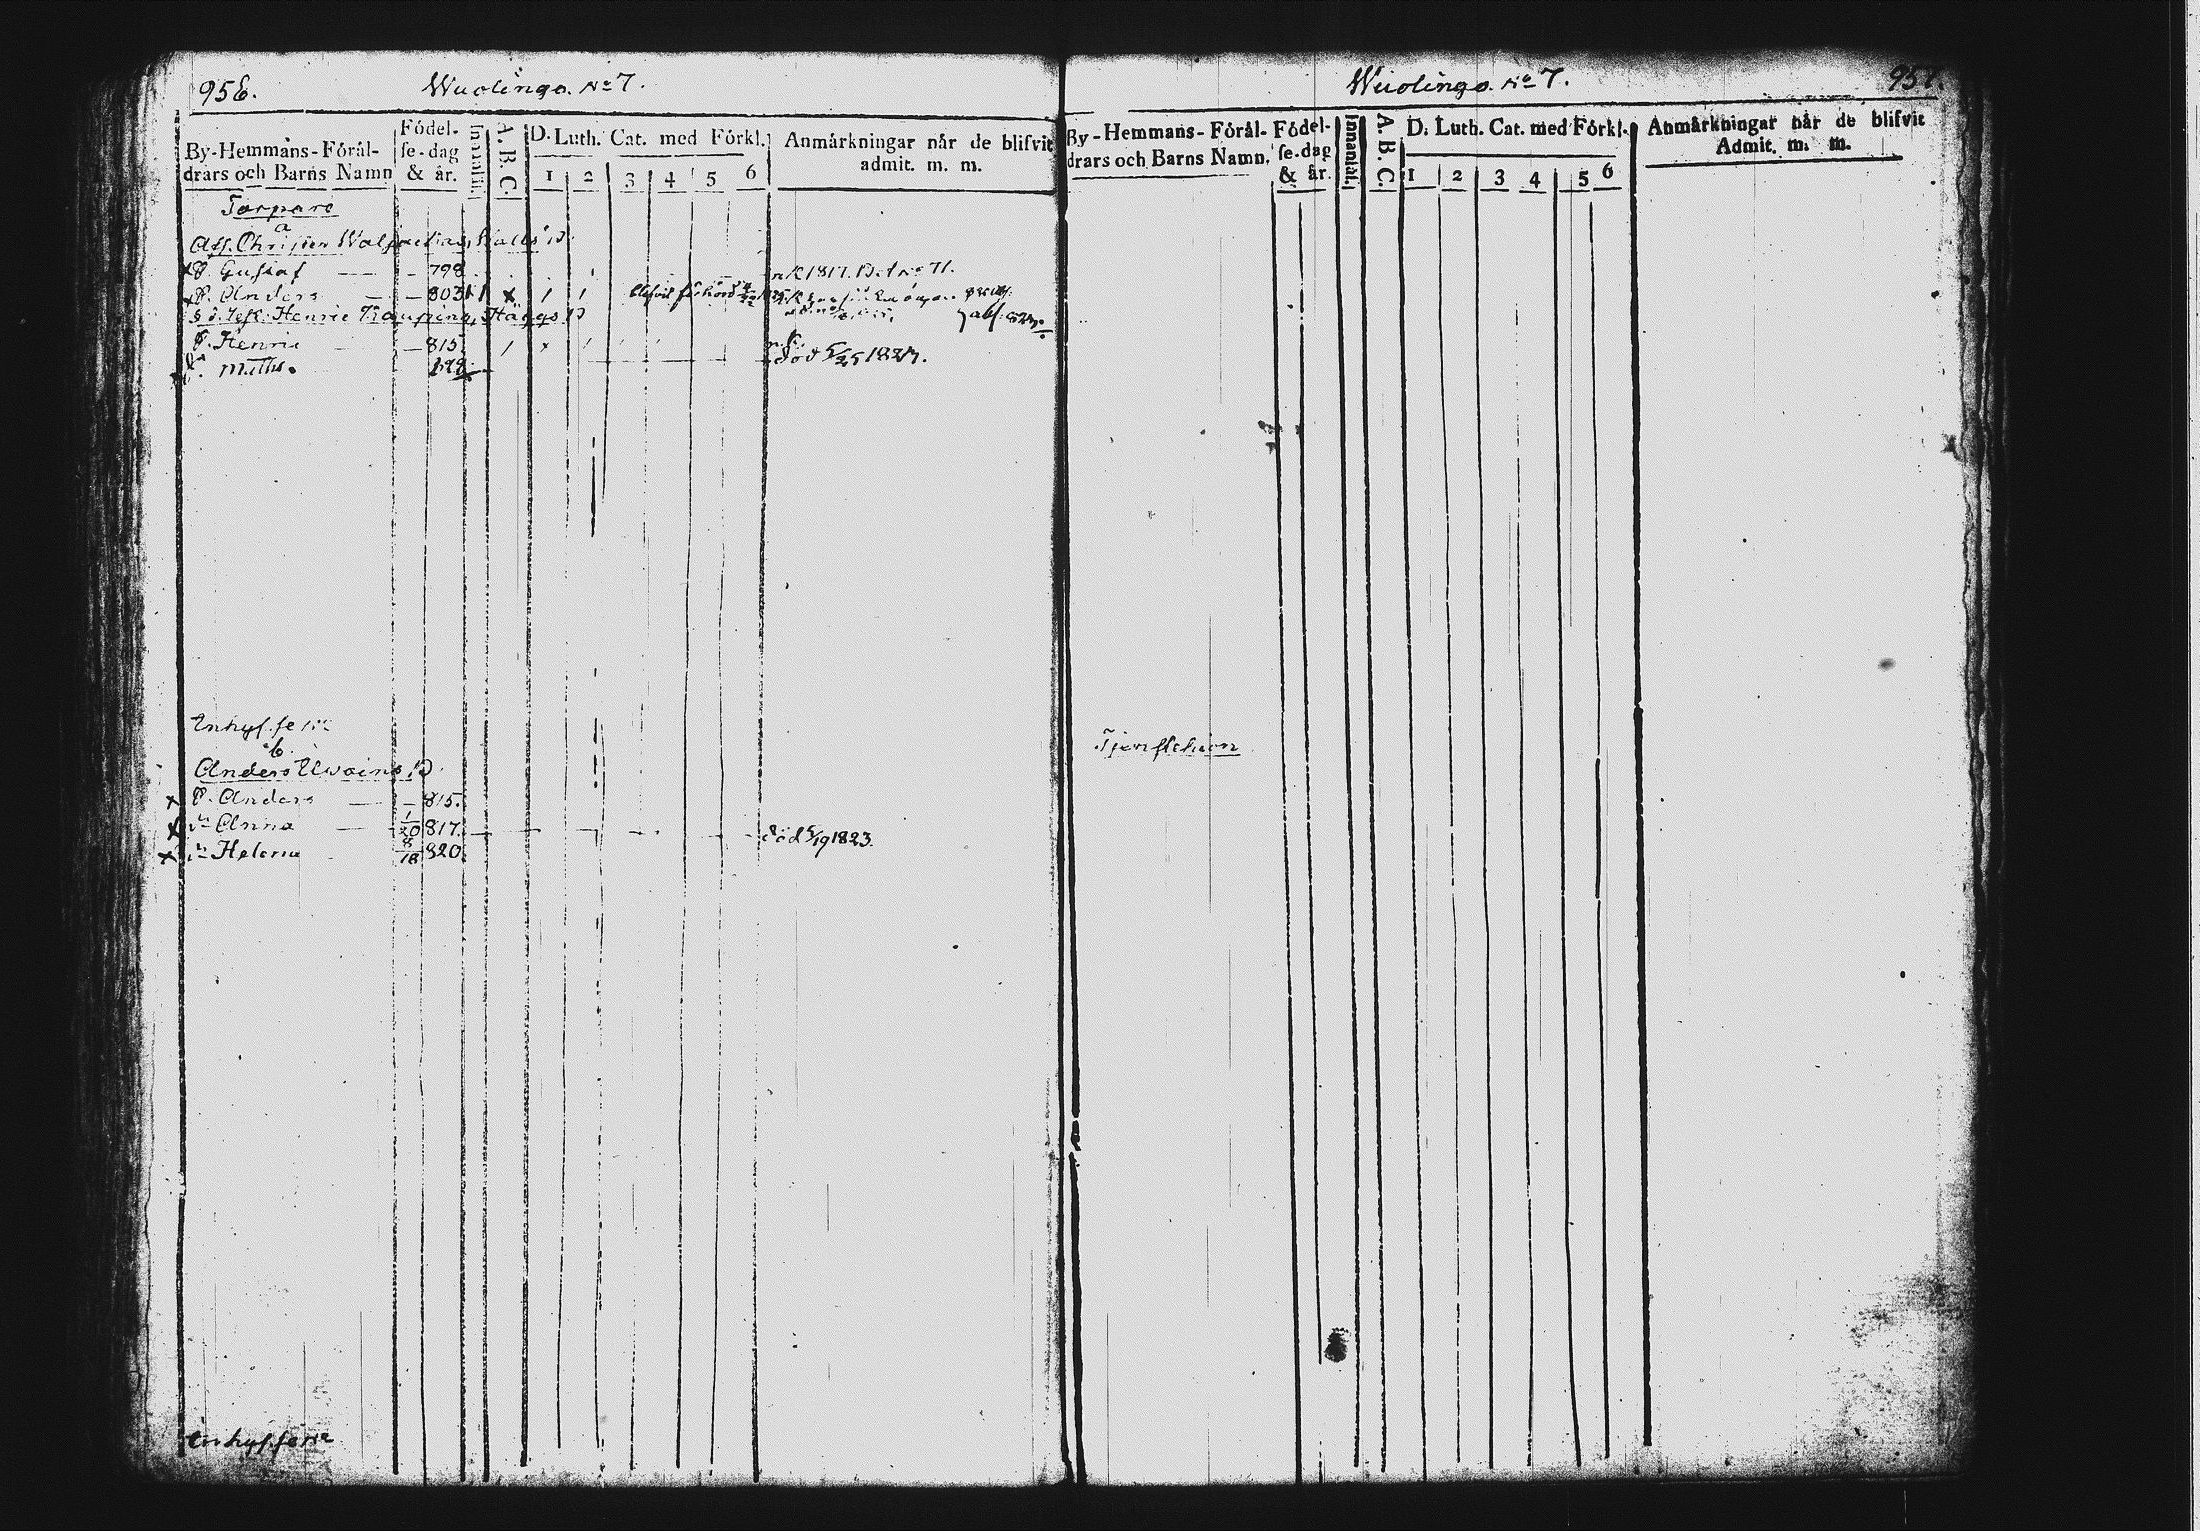 956.
Wuolingo. No 7.
By-Hemmans-Föräl-
drars och Barns Namn
Födel-
se-dag
& år.
Innanläs.
A. B. C.
D. Luth. Cat. med Förkl.
1 2 3 4 5 6
Anmärkningar når de blifvit
admit. m. m.
Torpare
a
Afs. Christer
P. Gustaf — — 798
n k 1817. Bet no 71.
P. Anders — — 803
Henric
P. Henric — 815
Maths.
död 5/25 1827.
Inhyssene
b.
Anders Uwoinos B
P. Anders — — 815.
Dr Anna — 1/20 817.
död 5/19 1823.
Dr Helena 8/18 820
Inhyssene
Wuolingo. No 7.
957.
By-Hemmans-Förål-
drars och Barns Namn.
Födel-
se-dag
& år.
Innanläs.
A. B. C.
D. Luth. Cat. med Förkl.
1 2 3 4 5 6
Anmärkningar når de blifvit
Admit. m. m.
Tjenstehion